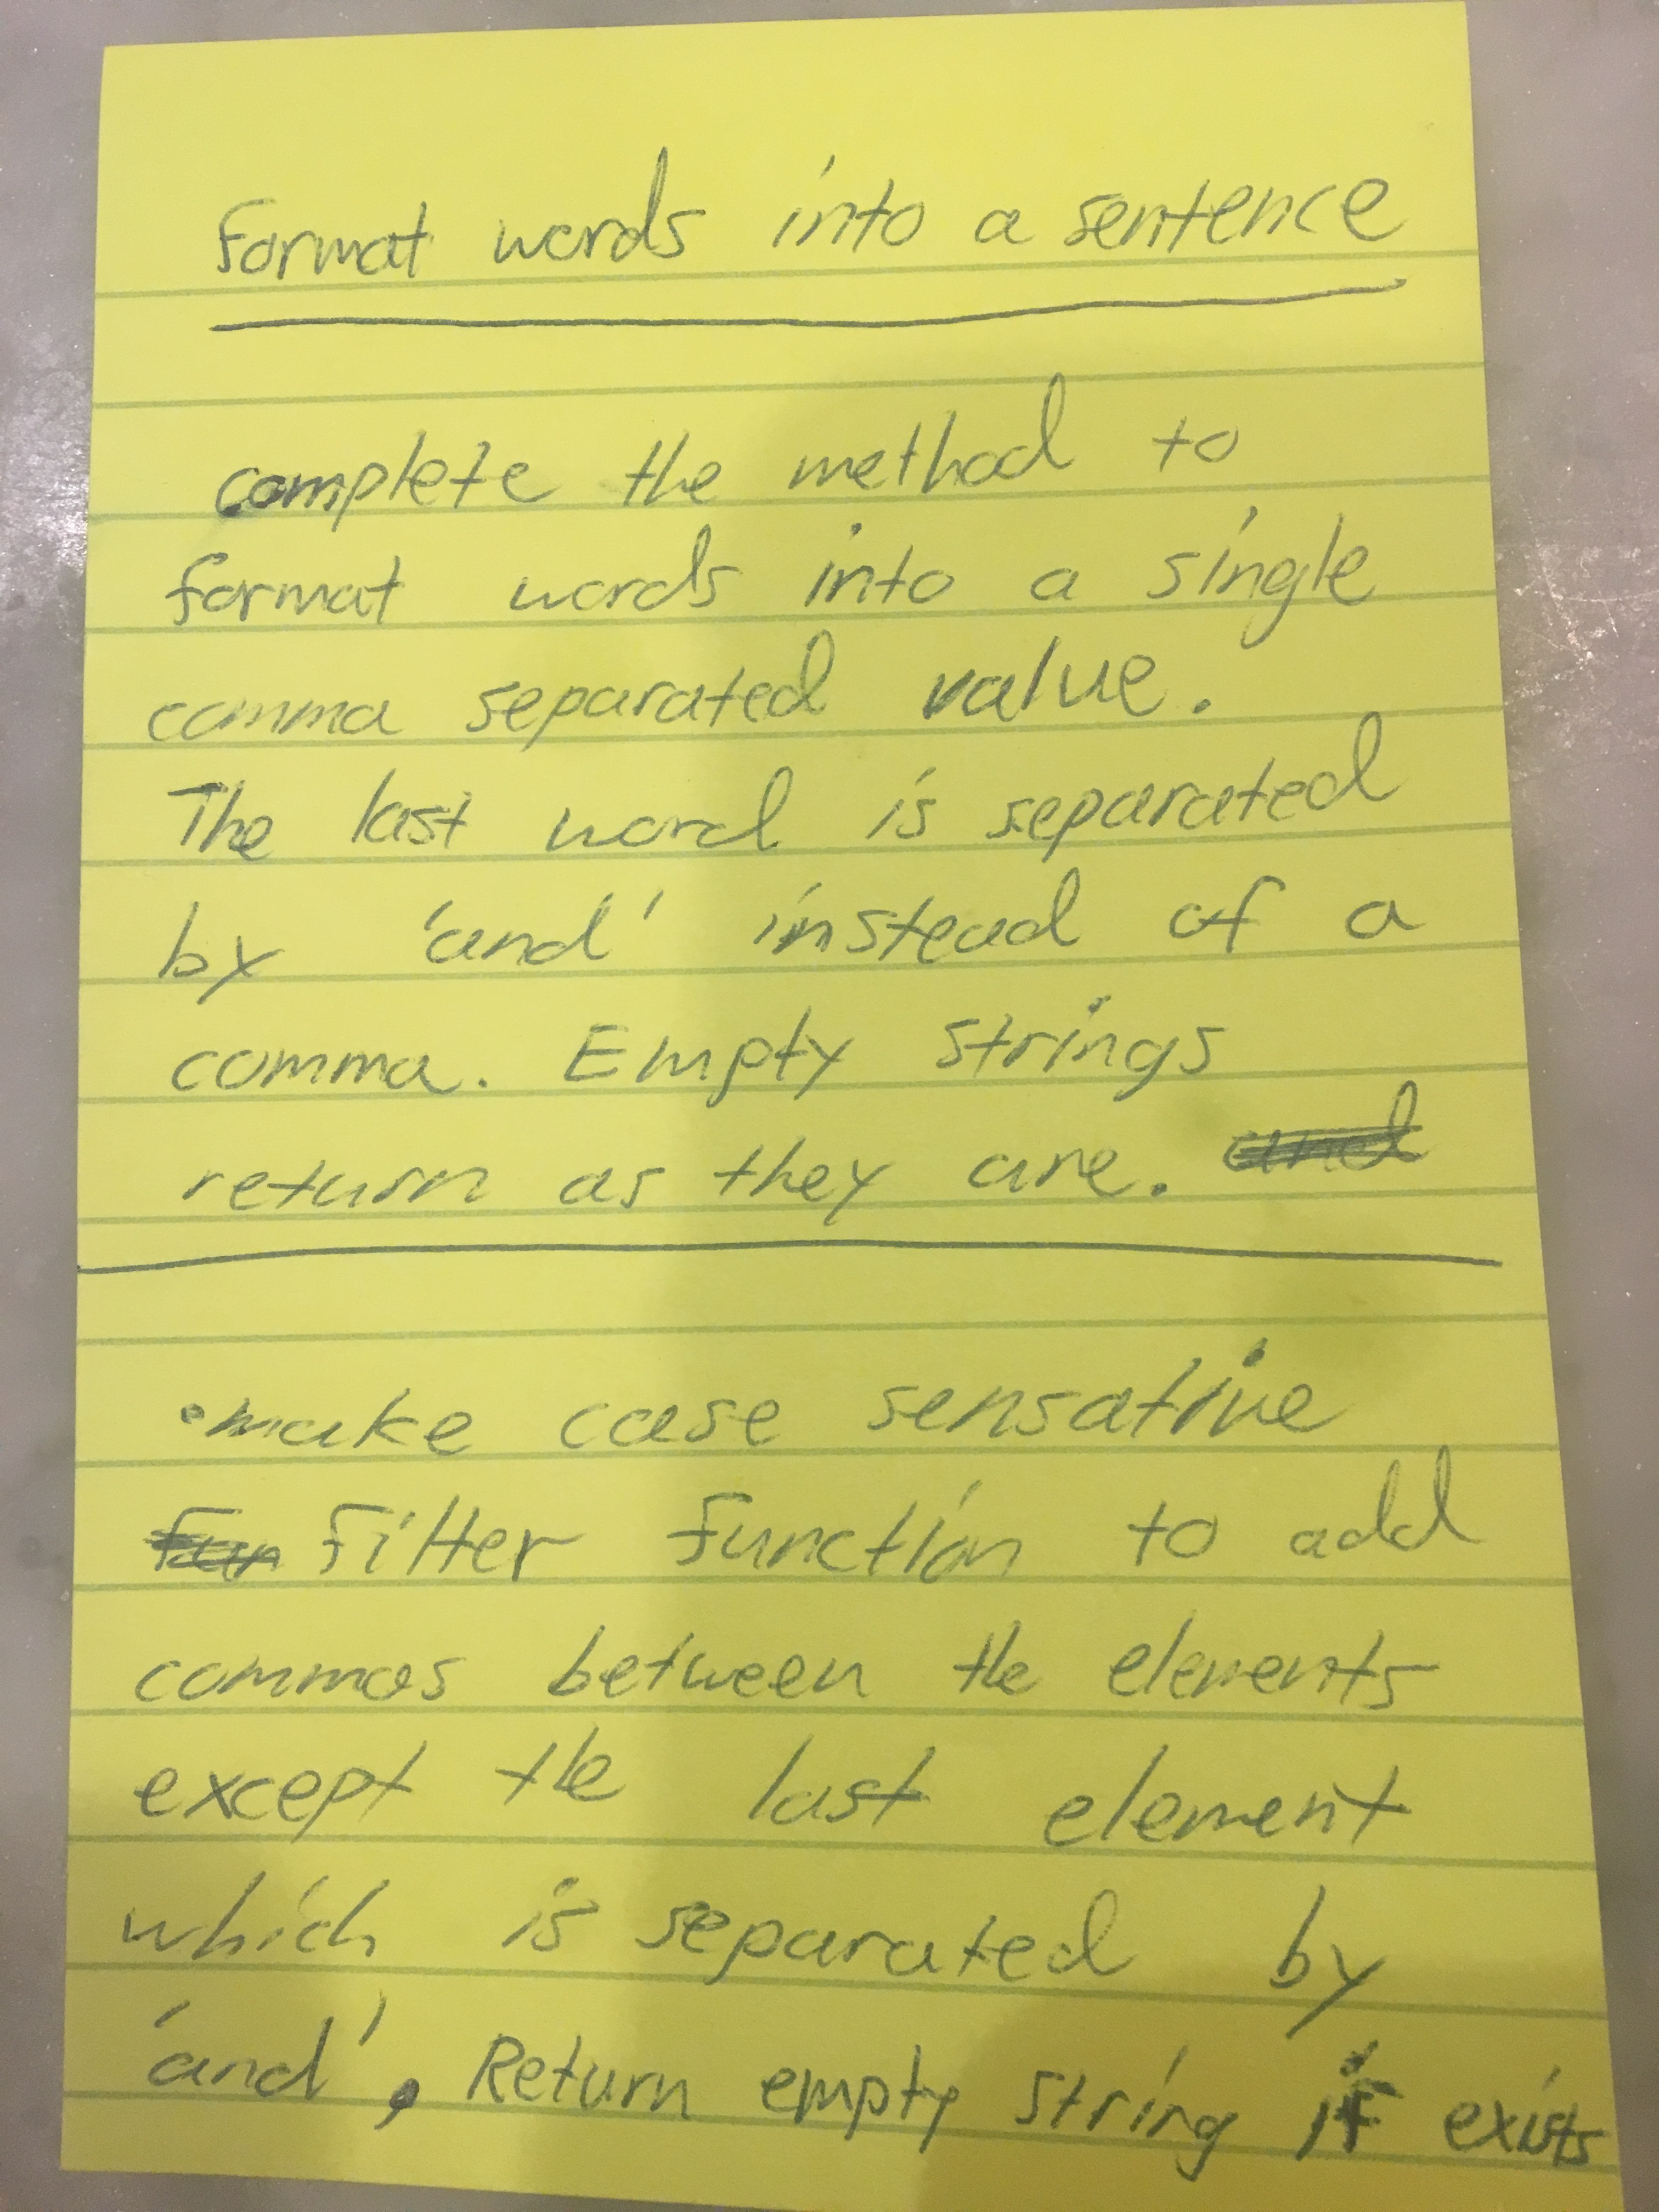 Format words into a sentence
complete the method to
format words into a single
comma separated value.
The last word is separated
by 'and' instead of a
comma. Empty strings
return as they are. and
•make case sensative
Fun Filter function to add
commas between the elements
except the last element
which is separated by
'and', Return empty string if exists